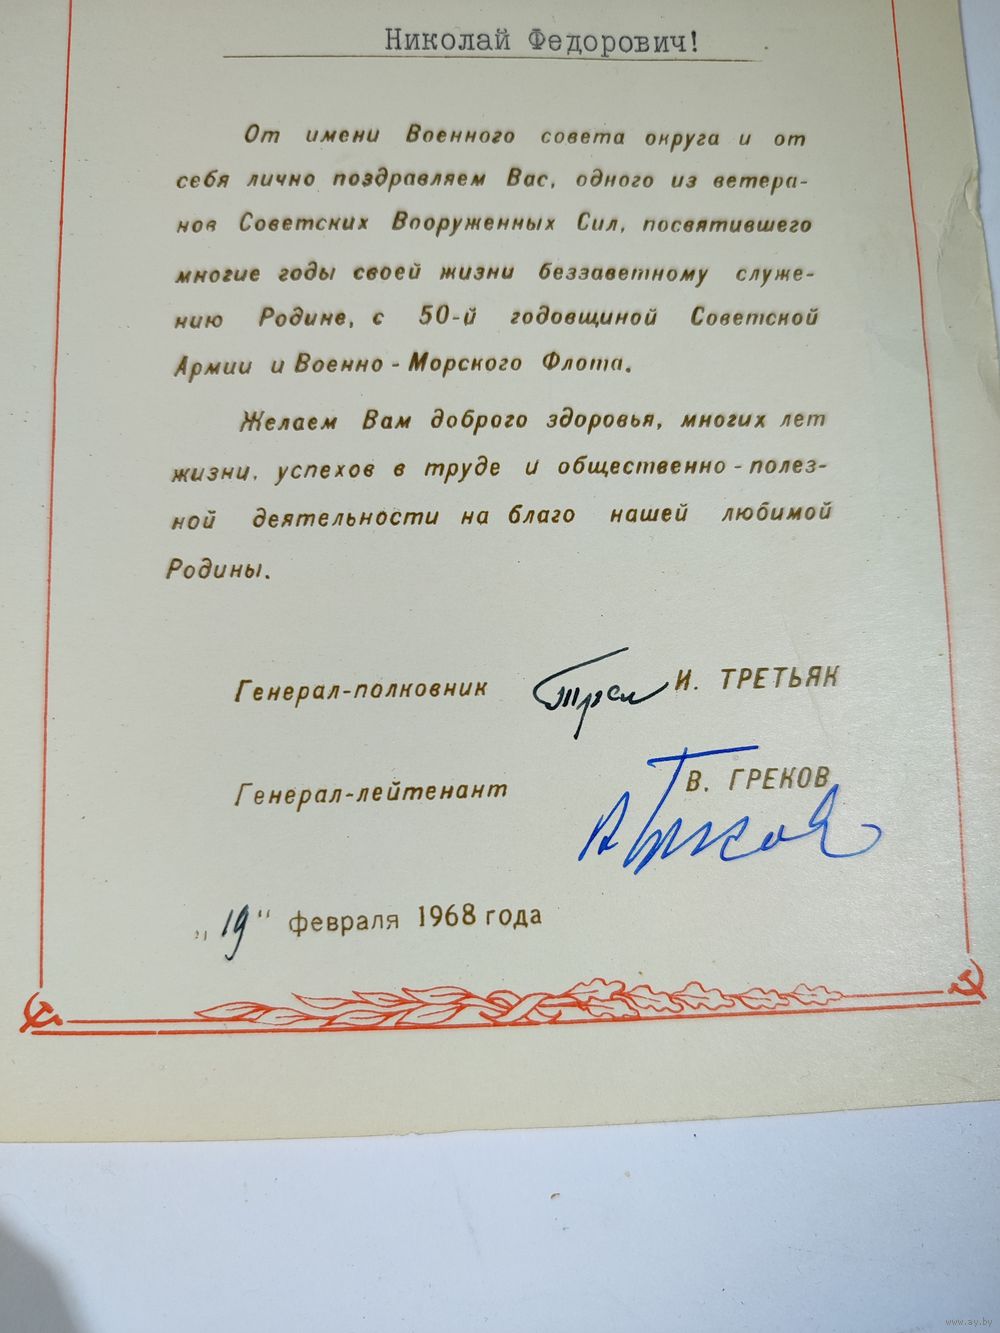 Николай Федорович!
От имени Военного совета округа и от
себя лично поздравляем Вас, одного из ветера-
нов Советских Вооруженных Сил, посвятившего
многие годы своей жизни беззаветному служе-
нию Родине, с 50-й годовщиной Советской
Армии и Военно-Морского Флота.
Желаем Вам доброго здоровья, многих лет
жизни, успехов в труде и общественно-полез-
ной деятельности на благо нашей любимой
Родины.
Генерал-полковник И. ТРЕТЬЯК
Генерал-лейтенант В. ГРЕКОВ
„19" февраля 1968 года
www.ay.by